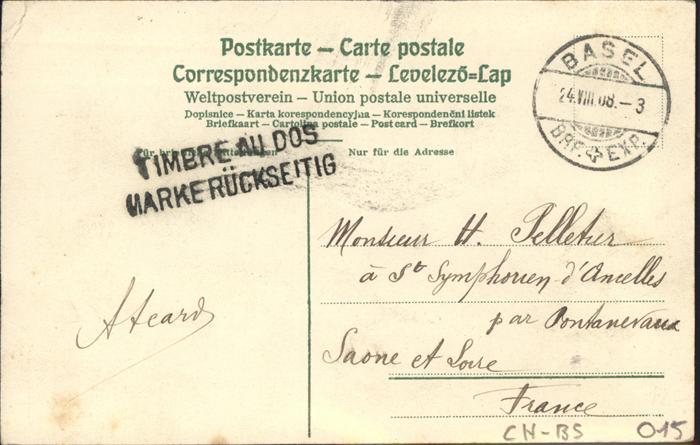 Postkarte – Carte postale
Correspondenzkarte – Levelező=Lap
Weltpostverein – Union postale universelle
Dopisnice – Karta korespondencyjna – Korespondenční listek
Briefkaart – Cartolina postale – Post card – Brefkort
Für briefliche Mitteilungen
Nur für die Adresse
TIMBRE AU DOS
MARKE RÜCKSEITIG
BASEL
24.VIII.08.–3
BRF. EXP.
Monsieur H. Pelletier
à St Symphorien d'Ancelles
par Pontanevaux
Saone et Loire
France
CH-BS 015